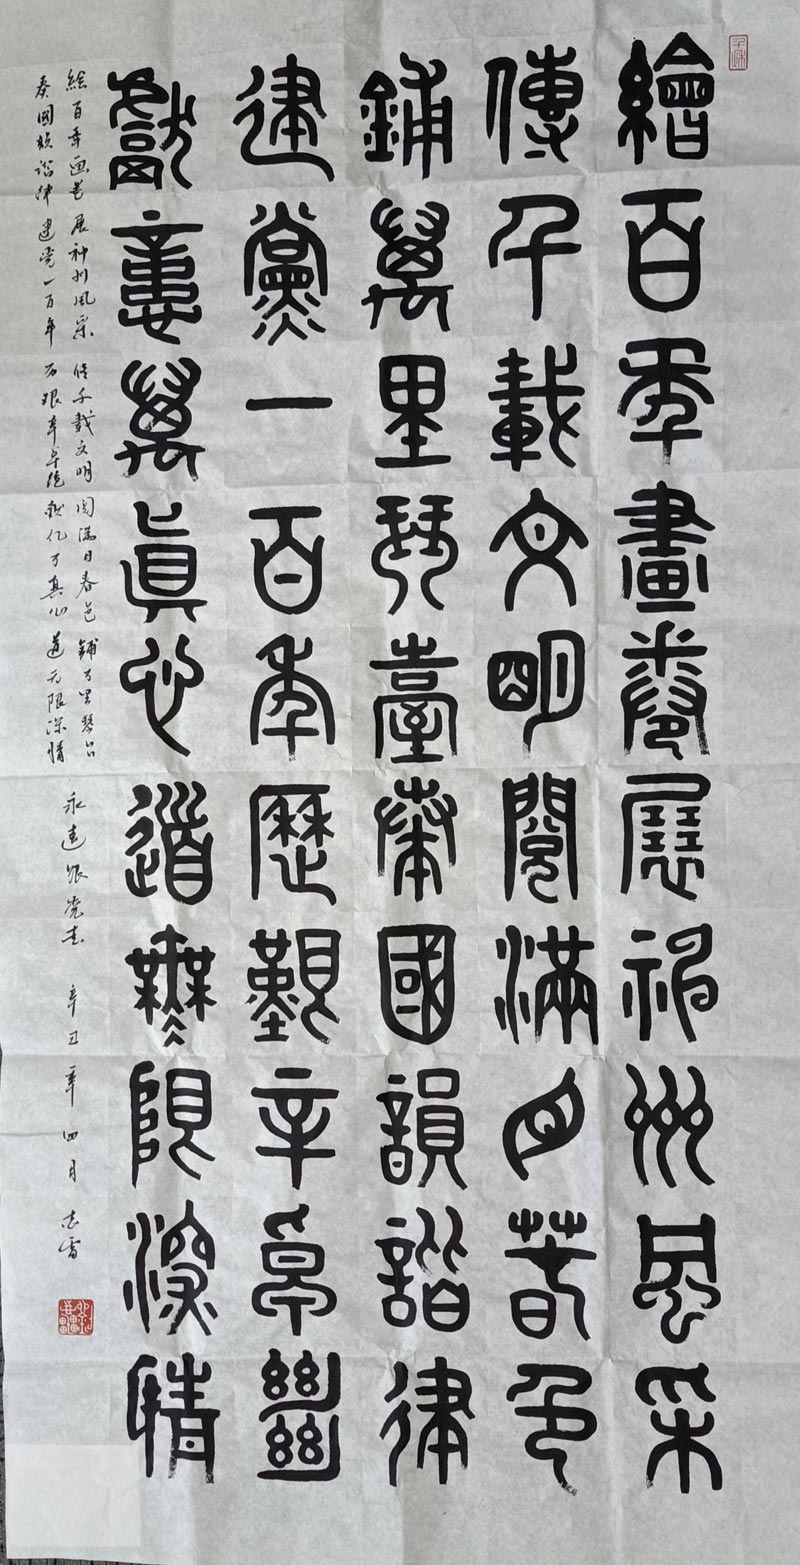 繪百年畫卷展神州風采
傳千載文明閱滿目春色
鋪萬里琴臺奏國韻諧律
建黨一百年歷艱辛卓絕
獻億萬真心道無限深情
絵百年画卷展神州风采 传千载文明阅满目春色 铺万里琴台
奏國韵谐律 建党一百年 历艰辛卓绝 献亿万真心 道无限深情
永远跟党走 辛丑年四月 志雷